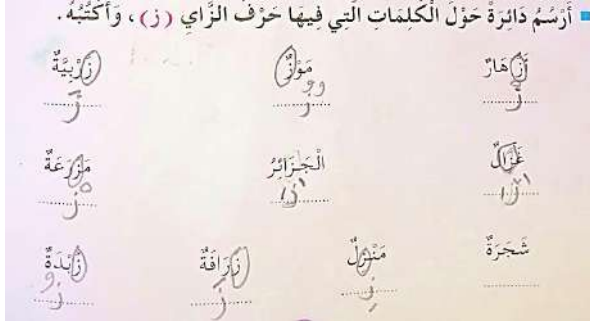 أَرْسُمُ دَائِرَةً حَوْلَ الْكَلِمَاتِ الَّتِي فِيهَا حَرْفُ الزَّايِ (ز)، وَأَكْتُبُهُ.
أَزْهَارٌ مَوْزٌ زَرْبِيَّةٌ
ز ز ز
غَزَالٌ الْجَزَائِرُ مَزْرَعَةٌ
زا زا ز
شَجَرَةٌ مَنْزِلٌ زَرَافَةٌ زُبْدَةٌ
زِ زَ زُ